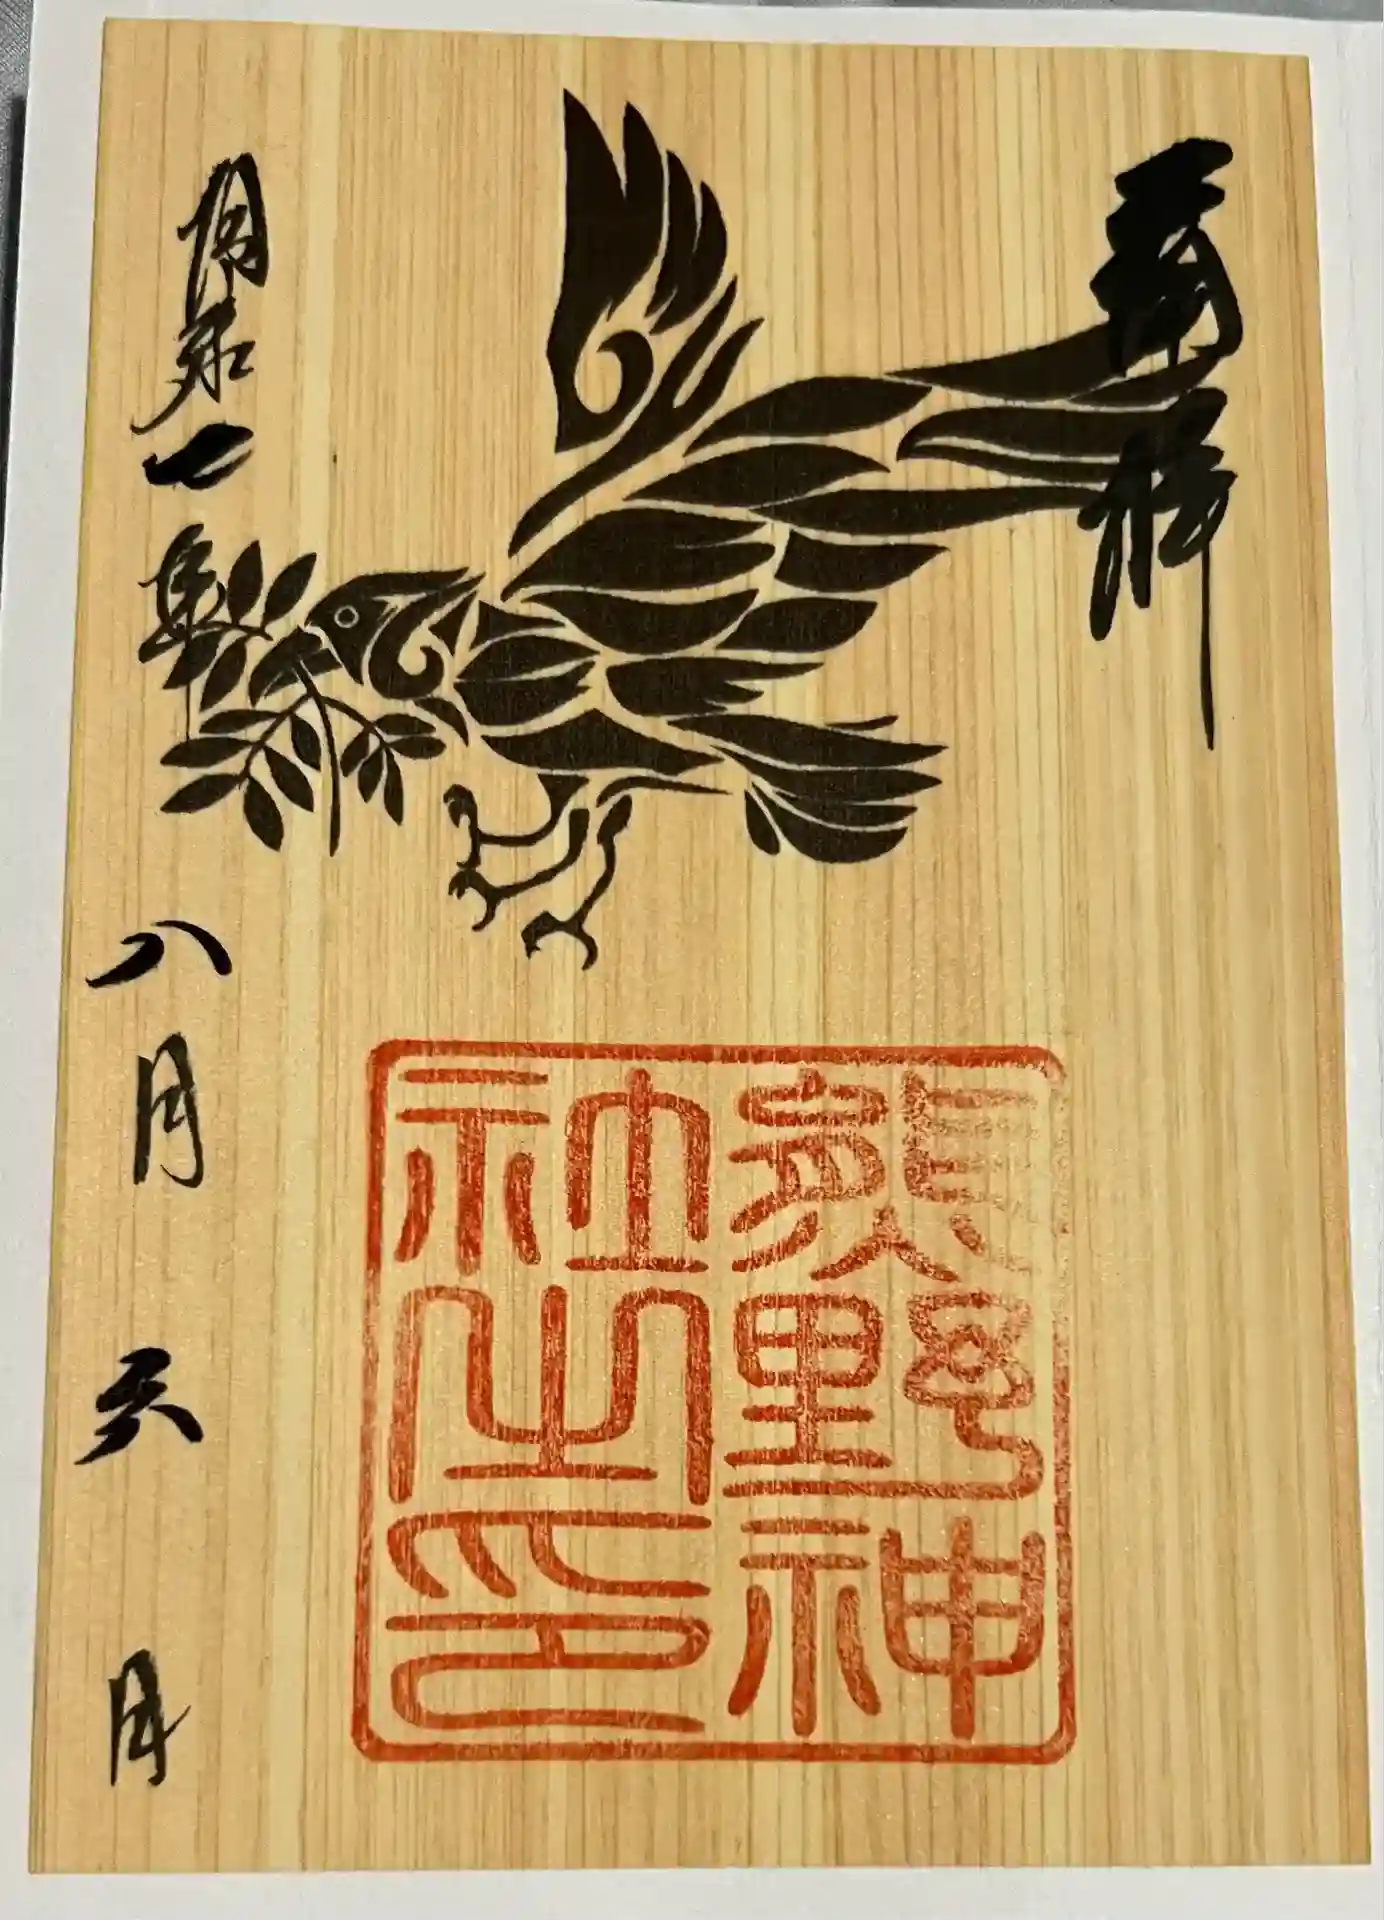 奉拝
熊野神
社之印
令和七年八月六日